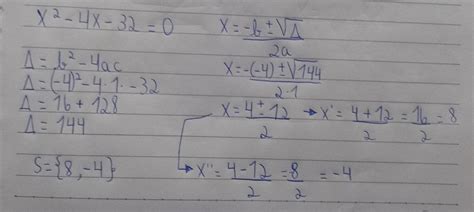 x² - 4x - 32 = 0
Δ = b² - 4ac
Δ = (-4)² - 4·1·-32
Δ = 16 + 128
Δ = 144
S = {8, -4}
x = -b ± √Δ / 2a
x = -(-4) ± √144 / 2·1
x = 4 ± 12 / 2 → x' = 4 + 12 / 2 = 16 / 2 = 8
x'' = 4 - 12 / 2 = 8 / 2 = -4